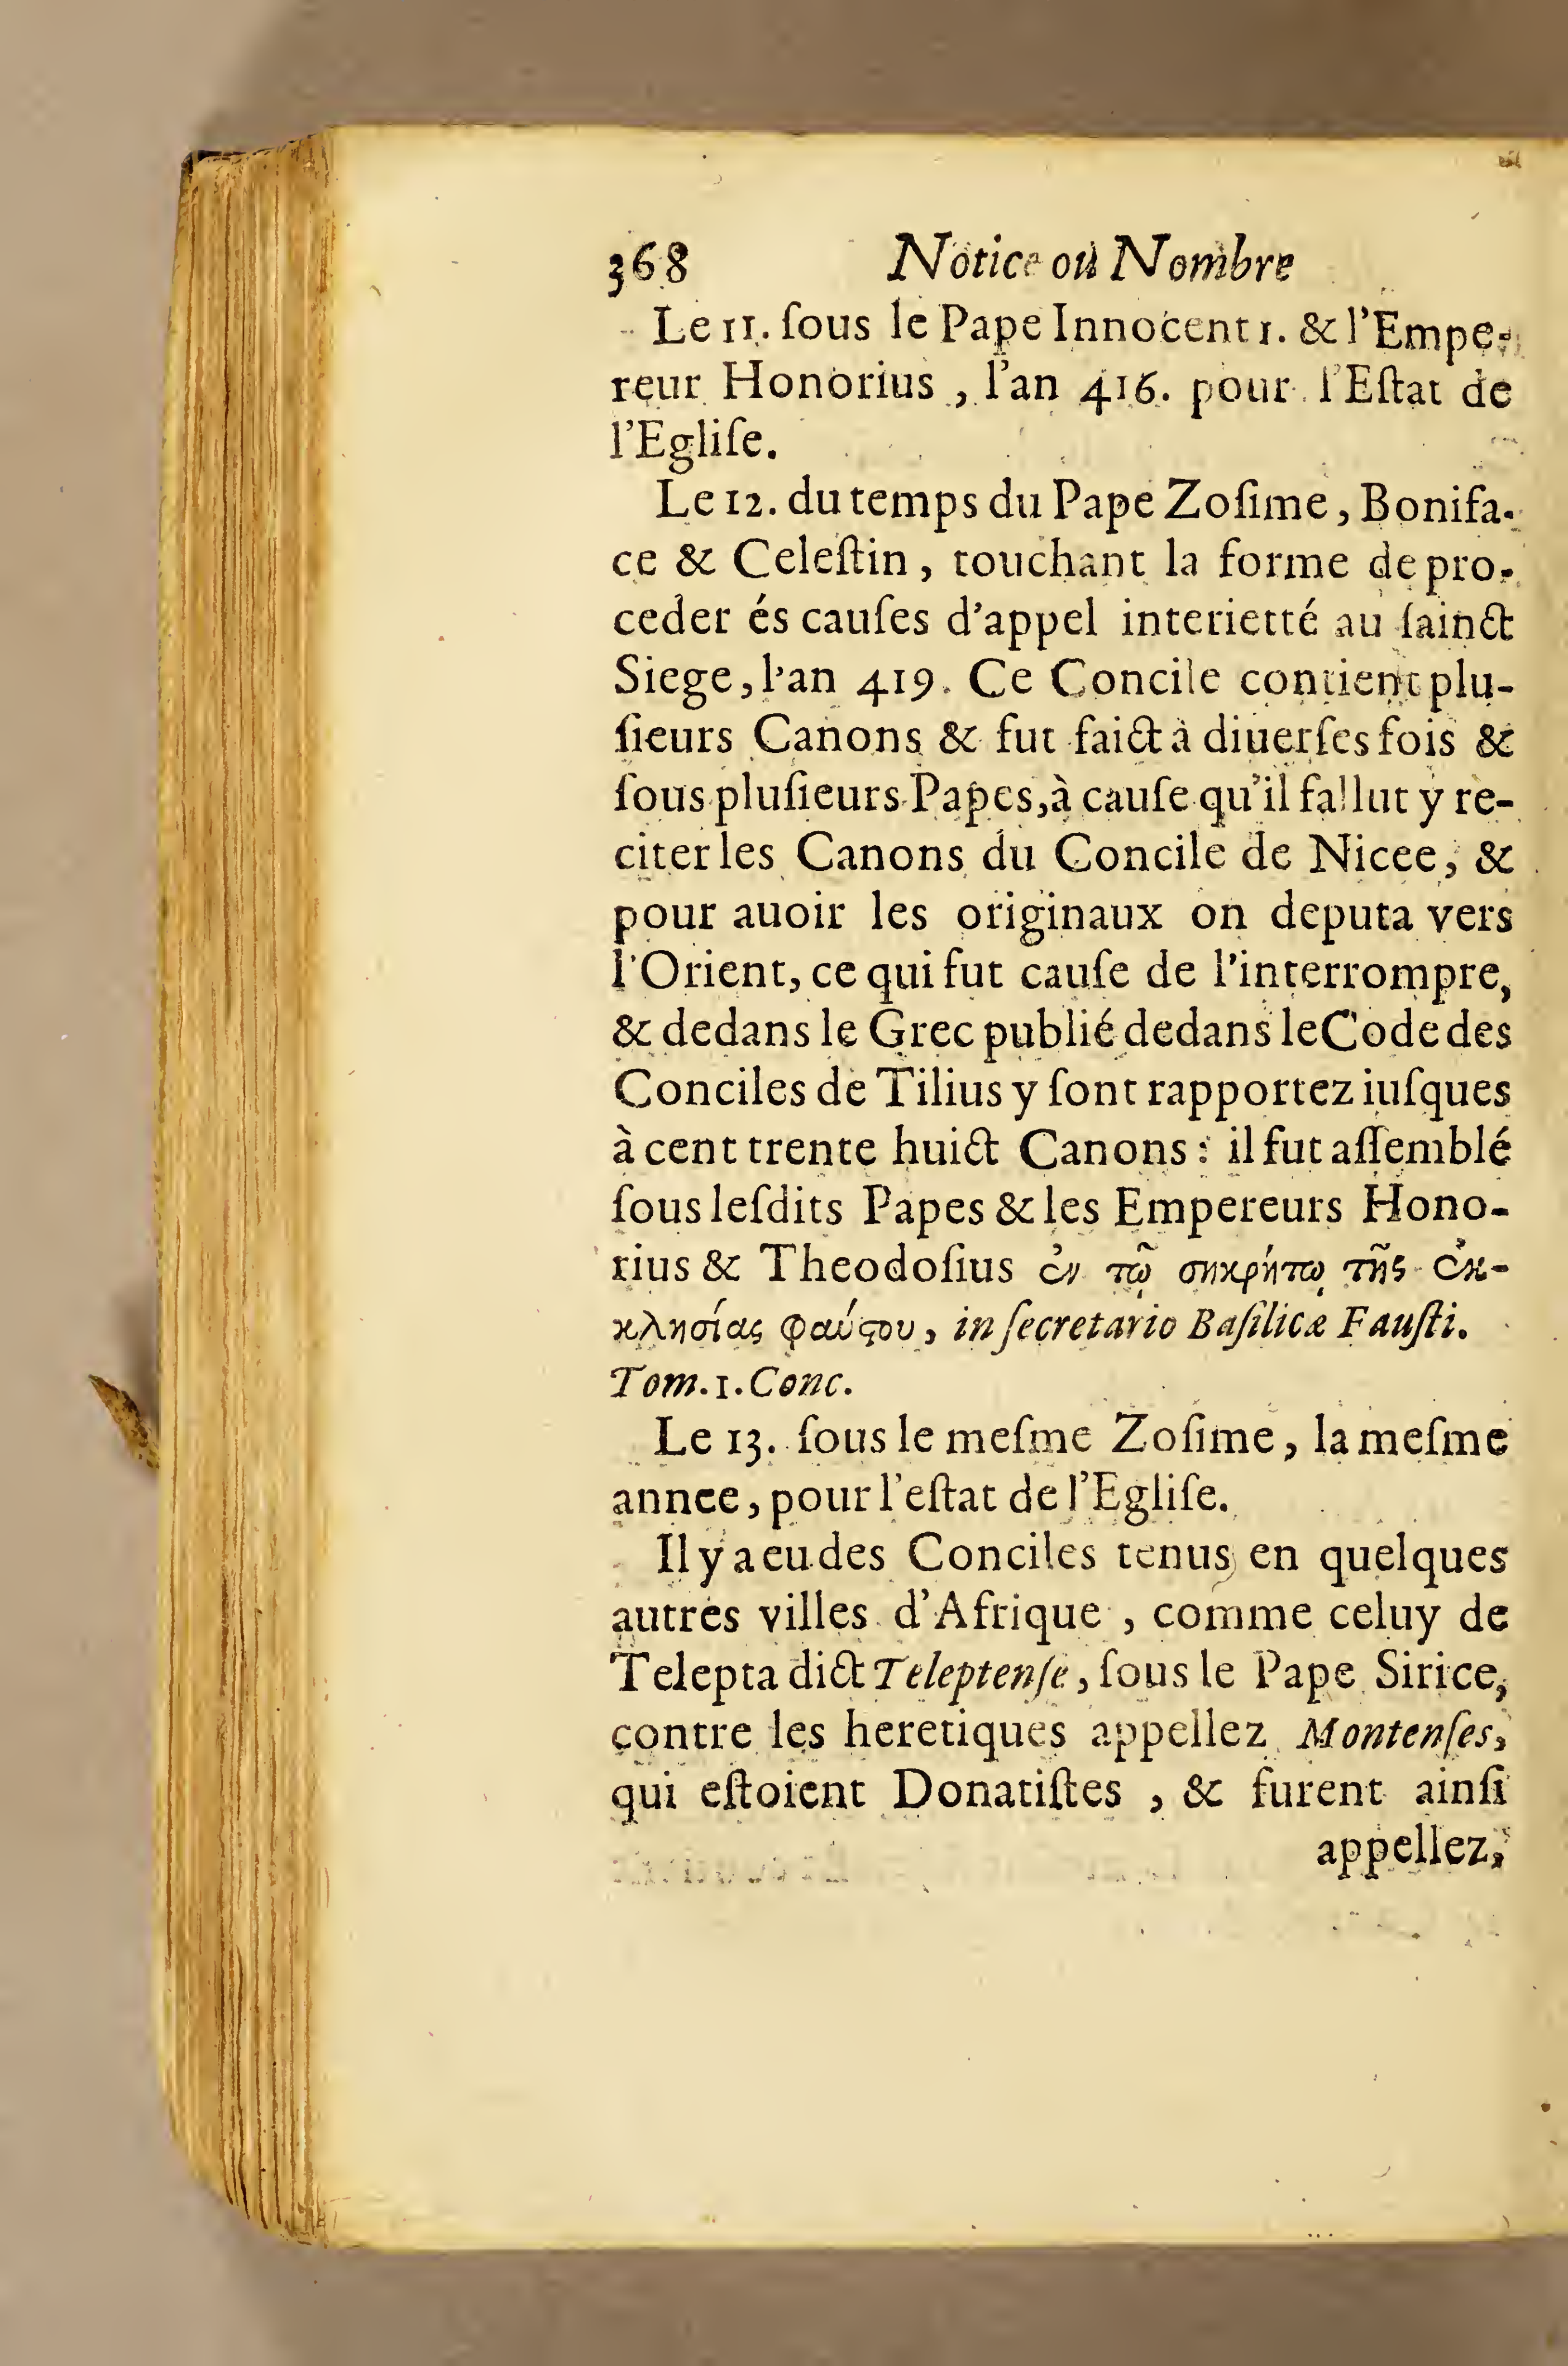 368 Notice où Nombre
Le 11. ſous le Pape Innocent 1. & l'Empe-
reur Honorius , l'an 416. pour l'Eſtat de
l'Egliſe.
Le 12. du temps du Pape Zoſime, Bonifa-
ce & Celeſtin, touchant la forme de pro-
ceder és cauſes d'appel interietté au ſainct
Siege, l'an 419. Ce Concile contient plu-
ſieurs Canons & fut faict à diuerſes fois &
ſous pluſieurs Papes, à cauſe qu'il fallut y re-
citer les Canons du Concile de Nicee, &
pour auoir les originaux on deputa vers
l'Orient, ce qui fut cauſe de l'interrompre,
& dedans le Grec publié dedans le Code des
Conciles de Tilius y ſont rapportez iuſques
à cent trente huict Canons : il fut aſſemblé
ſous leſdits Papes & les Empereurs Hono-
rius & Theodoſius ἐν τῷ σηκρήτῳ τῆς ἐκ-
κλησίας φαύςου, in ſecretario Baſilicæ Fauſti.
Tom. 1. Conc.
Le 13. ſous le meſme Zoſime, la meſme
annee, pour l'eſtat de l'Egliſe.
Il y a eu des Conciles tenus en quelques
autres villes d'Afrique , comme celuy de
Telepta dict Teleptenſe, ſous le Pape Sirice,
contre les heretiques appellez Montenſes,
qui eſtoient Donatiſtes , & furent ainſi
appellez,